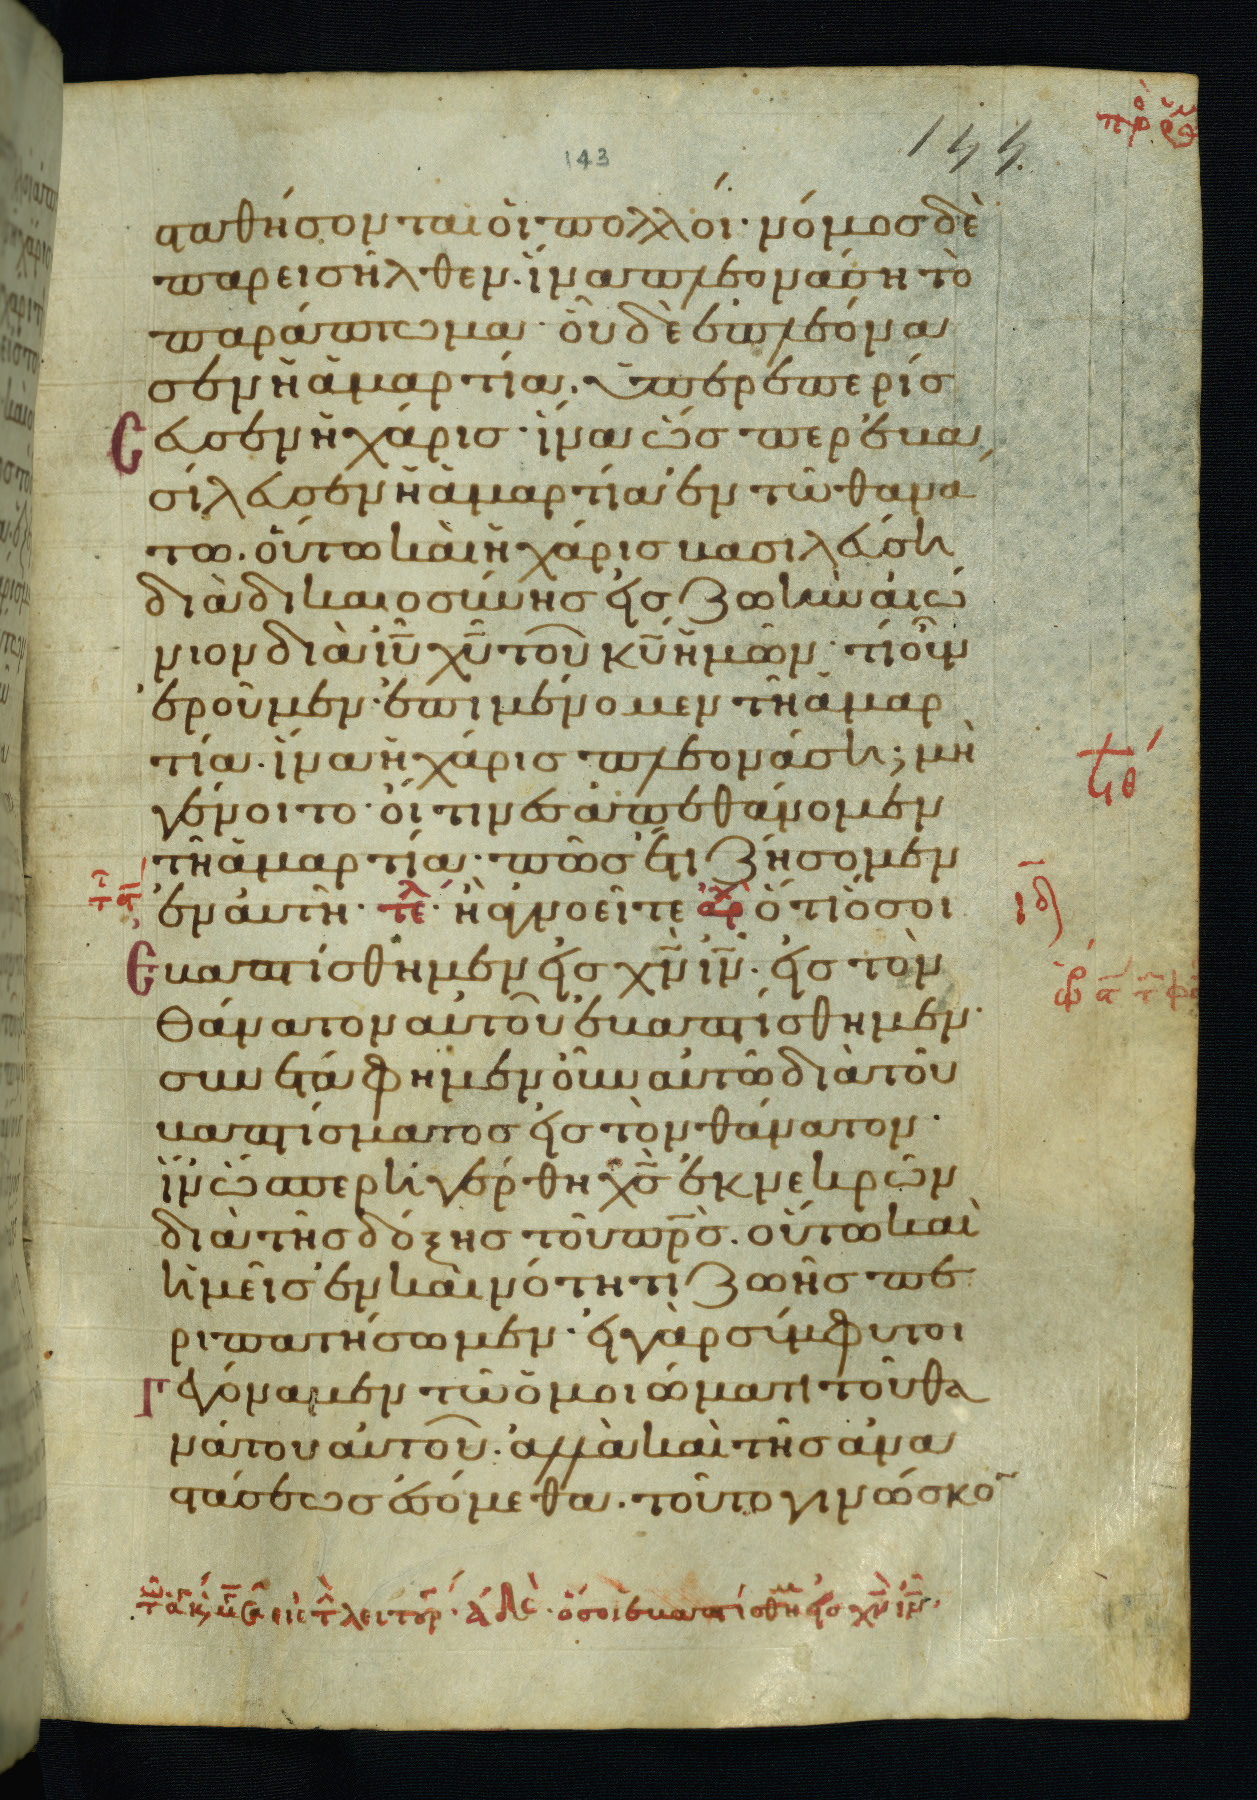 143
144.
σταθήσονται οἱ πολλοί· νόμος δὲ
παρεισῆλθεν. ἵνα πλεονάση τὸ
παράπτωμα· οὗ δὲ ἐπλεόνα
σεν ἡ ἁμαρτία. ὑπερεπερίσ
σευσεν ἡ χάρις· ἵνα ὥσπερ ἐβα
σίλευσεν ἡ ἁμαρτία ἐν τῶ θανα
τω. οὕτω καὶ ἡ χάρις βασιλεύση
διὰ δικαιοσύνης εἰς ζωὴν αἰώ
νιον διὰ ἰῦ χῦ τοῦ κῦ ἡμῶν· τί οὖν
ἐροῦμεν· ἐπιμένομεν τῆ ἁμαρ
τία. ἵνα ἡ χάρις πλεονάση; μὴ
γένοιτο· οἵτινες ἀπεθάνομεν
τῆ ἁμαρτία· πῶς ἔτι ζήσομεν
ἐν αὐτῆ· τελ· ἢ ἀγνοεῖτε ἀρχ ὅτι ὅσοι
ἐβαπτίσθημεν εἰς χν ιν· εἰς τὸν
θάνατον αὐτοῦ ἐβαπτίσθημεν·
συνετάφημεν οὖν αὐτῶ διὰ τοῦ
βαπτίσματος εἰς τὸν θάνατον·
ἵν ὥσπερ ἠγέρθη χς ἐκ νεκρῶν
διὰ τῆς δόξης τοῦ πρς. οὕτω καὶ
ἡμεῖς ἐν καινότητι ζωῆς πε
ριπατήσωμεν· εἰ γὰρ σύμφυτοι
γεγόναμεν τῶ ὁμοιώματι τοῦ θα
νάτου αὐτοῦ. ἀλλὰ καὶ τῆς ἀνα
στάσεως ἐσόμεθα. τοῦτο γινώσκο
λειτουρ· ἀδε· ὅσοι ἐβαπτίσθημ εἰς χν ιν·